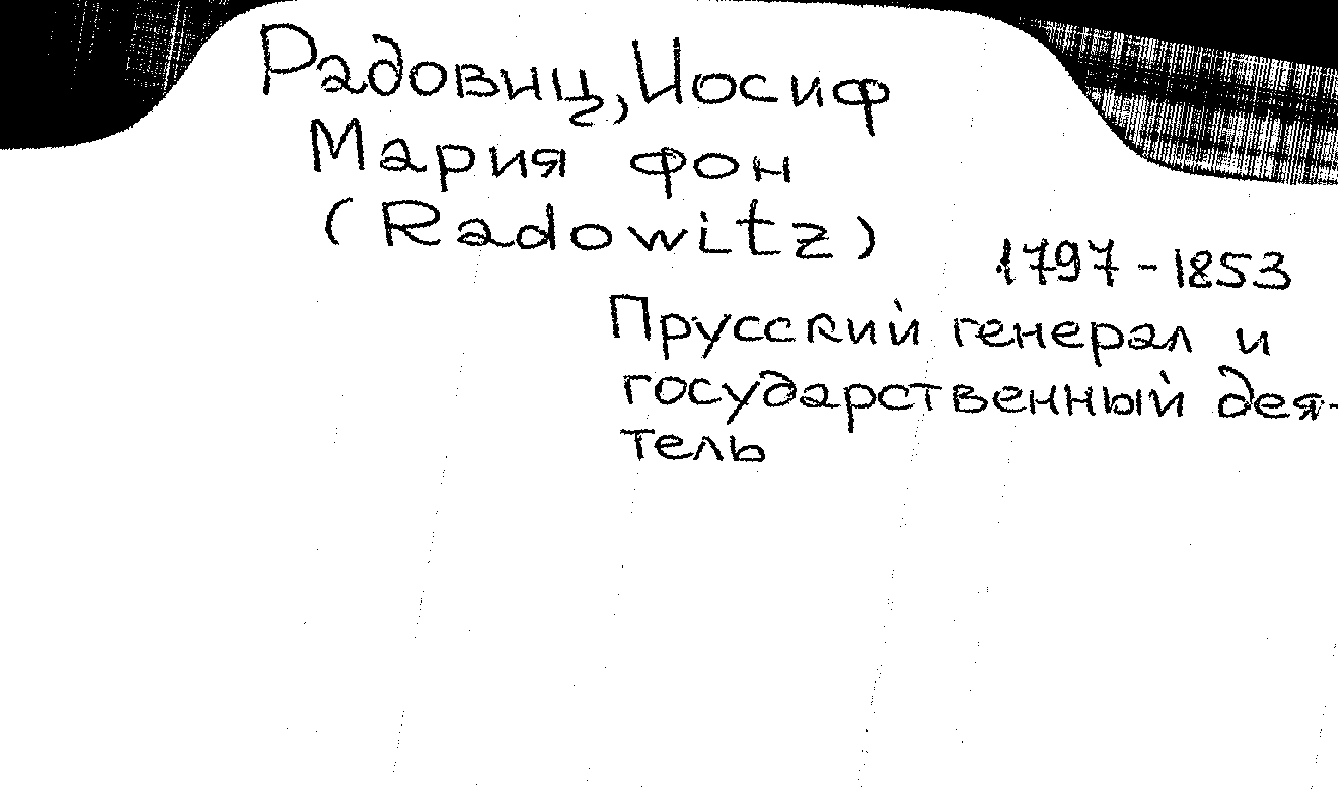 Радовиц, Иосиф
Мария фон
(Radowitz)
1797-1853
Прусский генерал и
государственный дея-
тель